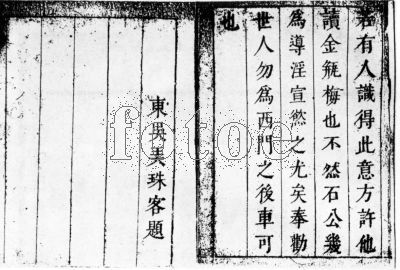 若有人識得此意方許他
讀金瓶梅也不然石公幾
為導淫宣慾之尤矣奉勸
世人勿為西門之後車可
也
東吳弄珠客題
fotoe